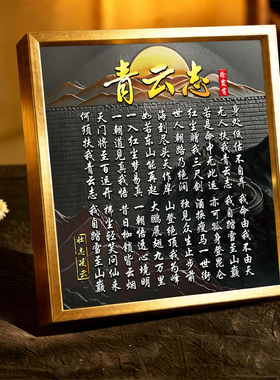 青云志
身处低谷不自弃 我命由我不由天
无人扶我青云志 我自踏雪至山巅
若是命中无此运 亦可孤身登昆仑
红尘赠我三尺剑 酒换瘦马一世街
世人朝路乃绝间 独见众生止步前
海到尽头天作岸 山登绝顶我为峰
如若东山能再起 大鹏展翅九万里
一入红尘梦易真 一朝悟透心境明
一朝道见真我悟 昔日枷锁皆云烟
天门将至百运开 拂尘轻笑问仙来
何须扶我青云志 我自踏雪至山巅
壮志凌云